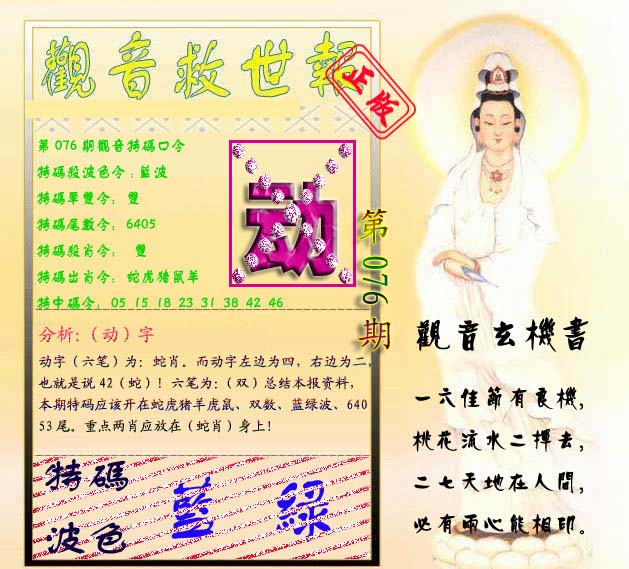 觀音救世報
正版
第076期觀音特碼口令
特碼殺波色令:藍波
特碼單雙令: 雙
特碼尾數令: 6405
特碼殺肖令: 雙
特碼出肖令: 蛇虎猪鼠羊
特中碼令: 05 15 18 23 31 38 42 46
动
第076期
分析:(动)字
动字（六笔）为：蛇肖。而动字左边为四，右边为二，
也就是说42（蛇）！六笔为：（双）总结本报资料，
本期特码应该开在蛇虎猪羊虎鼠、双数、蓝绿波、640
53尾。重点两肖应放在（蛇肖）身上！
特碼
波色
藍 綠
觀音玄機書
一六佳節有良機,
桃花流水二揮去,
二七天地在人間,
必有兩心能相印。